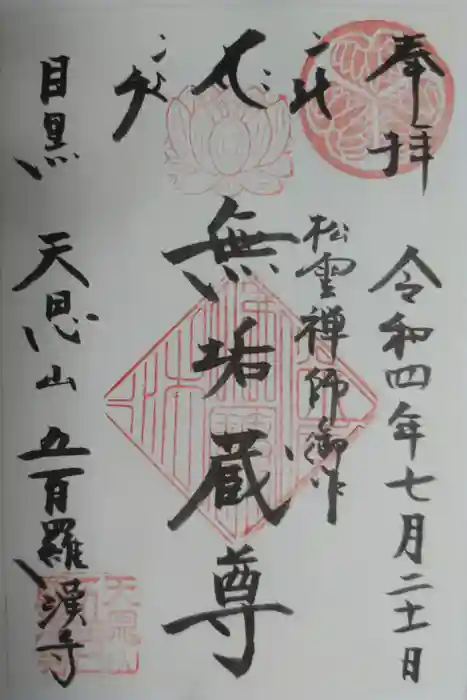 奉拝
令和四年七月二十一日
松雲禅師御作
無垢蔵尊
目黒 天恩山 五百羅漢寺